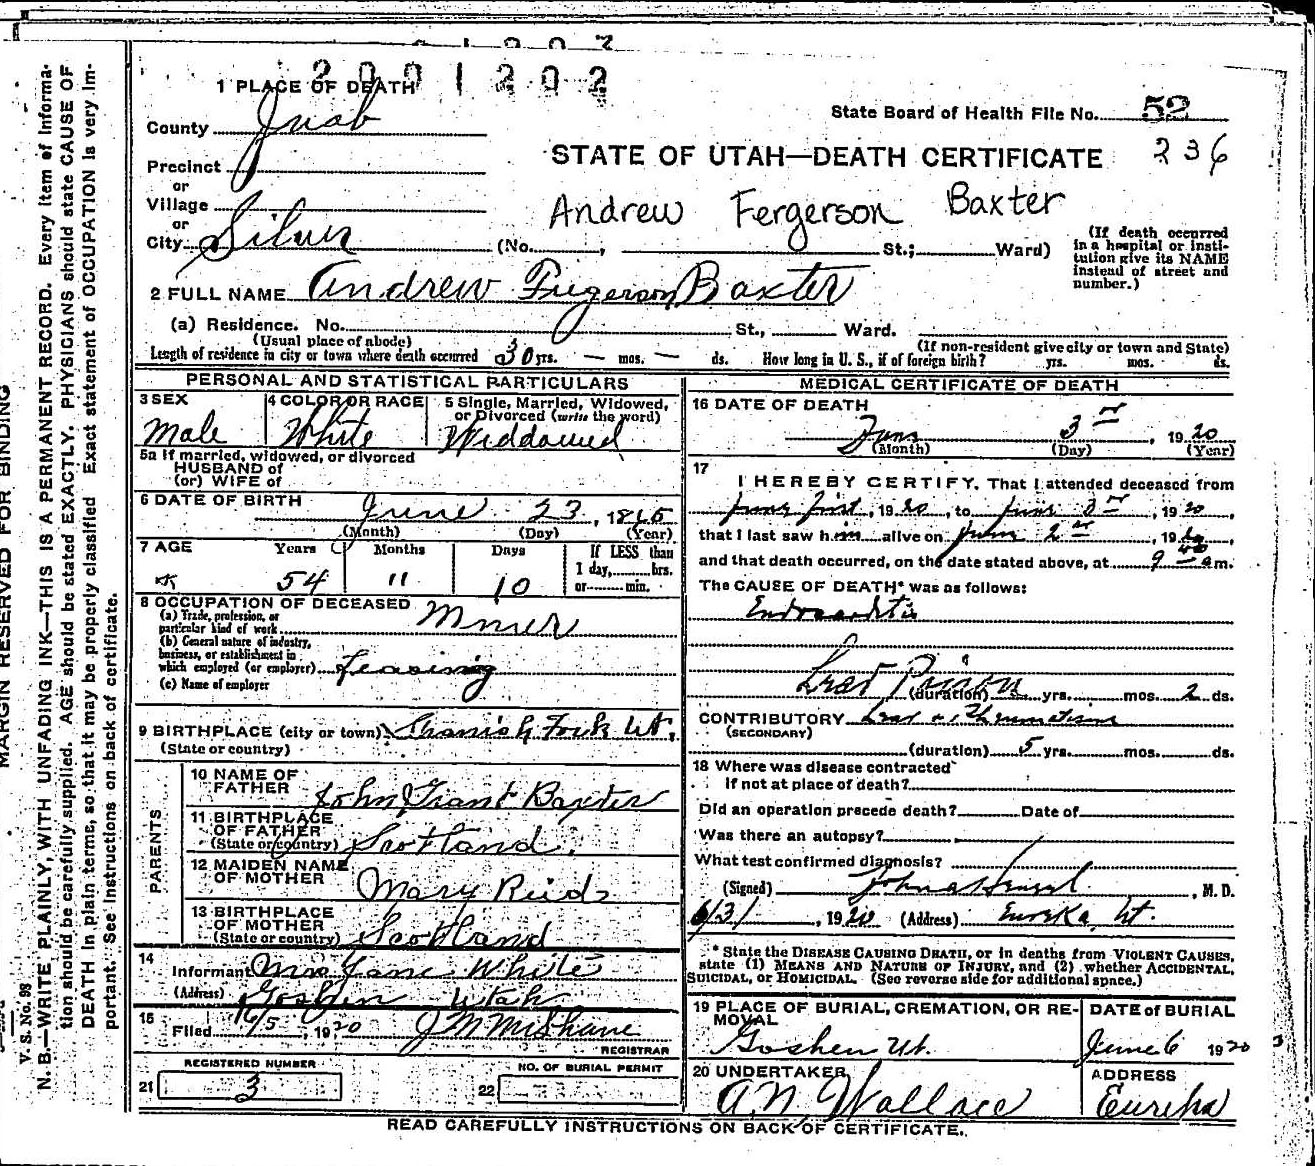 2001202
1 PLACE OF DEATH
State Board of Health File No. 52
County Juab
STATE OF UTAH—DEATH CERTIFICATE 236
Precinct
or
Village
or
Andrew Fergerson Baxter
City Silver (No. , St.; Ward)
(If death occurred
in a hospital or insti-
tution give its NAME
instead of street and
number.)
2 FULL NAME Andrew Furgerson Baxter
(a) Residence. No. St., Ward.
(Usual place of abode) (If non-resident give city or town and State)
Length of residence in city or town where death occurred 30 yrs. — mos. — ds. How long in U. S., if of foreign birth? yrs. mos. ds.
PERSONAL AND STATISTICAL PARTICULARS
3 SEX 4 COLOR OR RACE 5 Single, Married, Widowed,
or Divorced (write the word)
Male White Widdowed
5a If married, widowed, or divorced
HUSBAND of
(or) WIFE of
6 DATE OF BIRTH June 23, 1865
(Month) (Day) (Year)
7 AGE Years Months Days If LESS than
1 day, hrs.
54 11 10 or min.
8 OCCUPATION OF DECEASED
(a) Trade, profession, or
particular kind of work Miner
(b) General nature of industry,
business, or establishment in
which employed (or employer) Leasing
(c) Name of employer
9 BIRTHPLACE (city or town) Spanish Fork Ut.
(State or country)
PARENTS
10 NAME OF
FATHER John Grant Baxter
11 BIRTHPLACE
OF FATHER
(State or country) Scotland.
12 MAIDEN NAME
OF MOTHER Mary Reid
13 BIRTHPLACE
OF MOTHER
(State or country) Scotland
14
Informant Mrs Jane White
(Address) Goshen Utah
15
Filed 6/5, 1920 J M McShane
REGISTRAR
REGISTERED NUMBER NO. OF BURIAL PERMIT
21 3 22
MEDICAL CERTIFICATE OF DEATH
16 DATE OF DEATH
June 3, 1920
(Month) (Day) (Year)
17
I HEREBY CERTIFY, That I attended deceased from
June first, 1920, to June 3, 1920,
that I last saw him alive on June 2, 1920,
and that death occurred, on the date stated above, at 9 am.
The CAUSE OF DEATH* was as follows:
Endocarditis
Lead Poison
(duration) yrs. mos. 2 ds.
CONTRIBUTORY Rheumatism
(SECONDARY)
(duration) 5 yrs. mos. ds.
18 Where was disease contracted
If not at place of death?
Did an operation precede death? Date of
Was there an autopsy?
What test confirmed diagnosis?
(Signed) , M. D.
6/3/, 1920 (Address) Eureka, Ut.
* State the DISEASE CAUSING DEATH, or in deaths from VIOLENT CAUSES,
state (1) MEANS AND NATURE OF INJURY, and (2) whether ACCIDENTAL,
SUICIDAL, or HOMICIDAL. (See reverse side for additional space.)
19 PLACE OF BURIAL, CREMATION, OR RE-
MOVAL DATE of BURIAL
Goshen Ut. June 6 1920
20 UNDERTAKER ADDRESS
A. N. Wallace Eureka
READ CAREFULLY INSTRUCTIONS ON BACK OF CERTIFICATE.
MARGIN RESERVED FOR BINDING
V. S. No. 98
N. B.—WRITE PLAINLY, WITH UNFADING INK—THIS IS A PERMANENT RECORD. Every item of informa-
tion should be carefully supplied. AGE should be stated EXACTLY. PHYSICIANS should state CAUSE OF
DEATH in plain terms, so that it may be properly classified. Exact statement of OCCUPATION is very im-
portant. See Instructions on back of certificate.